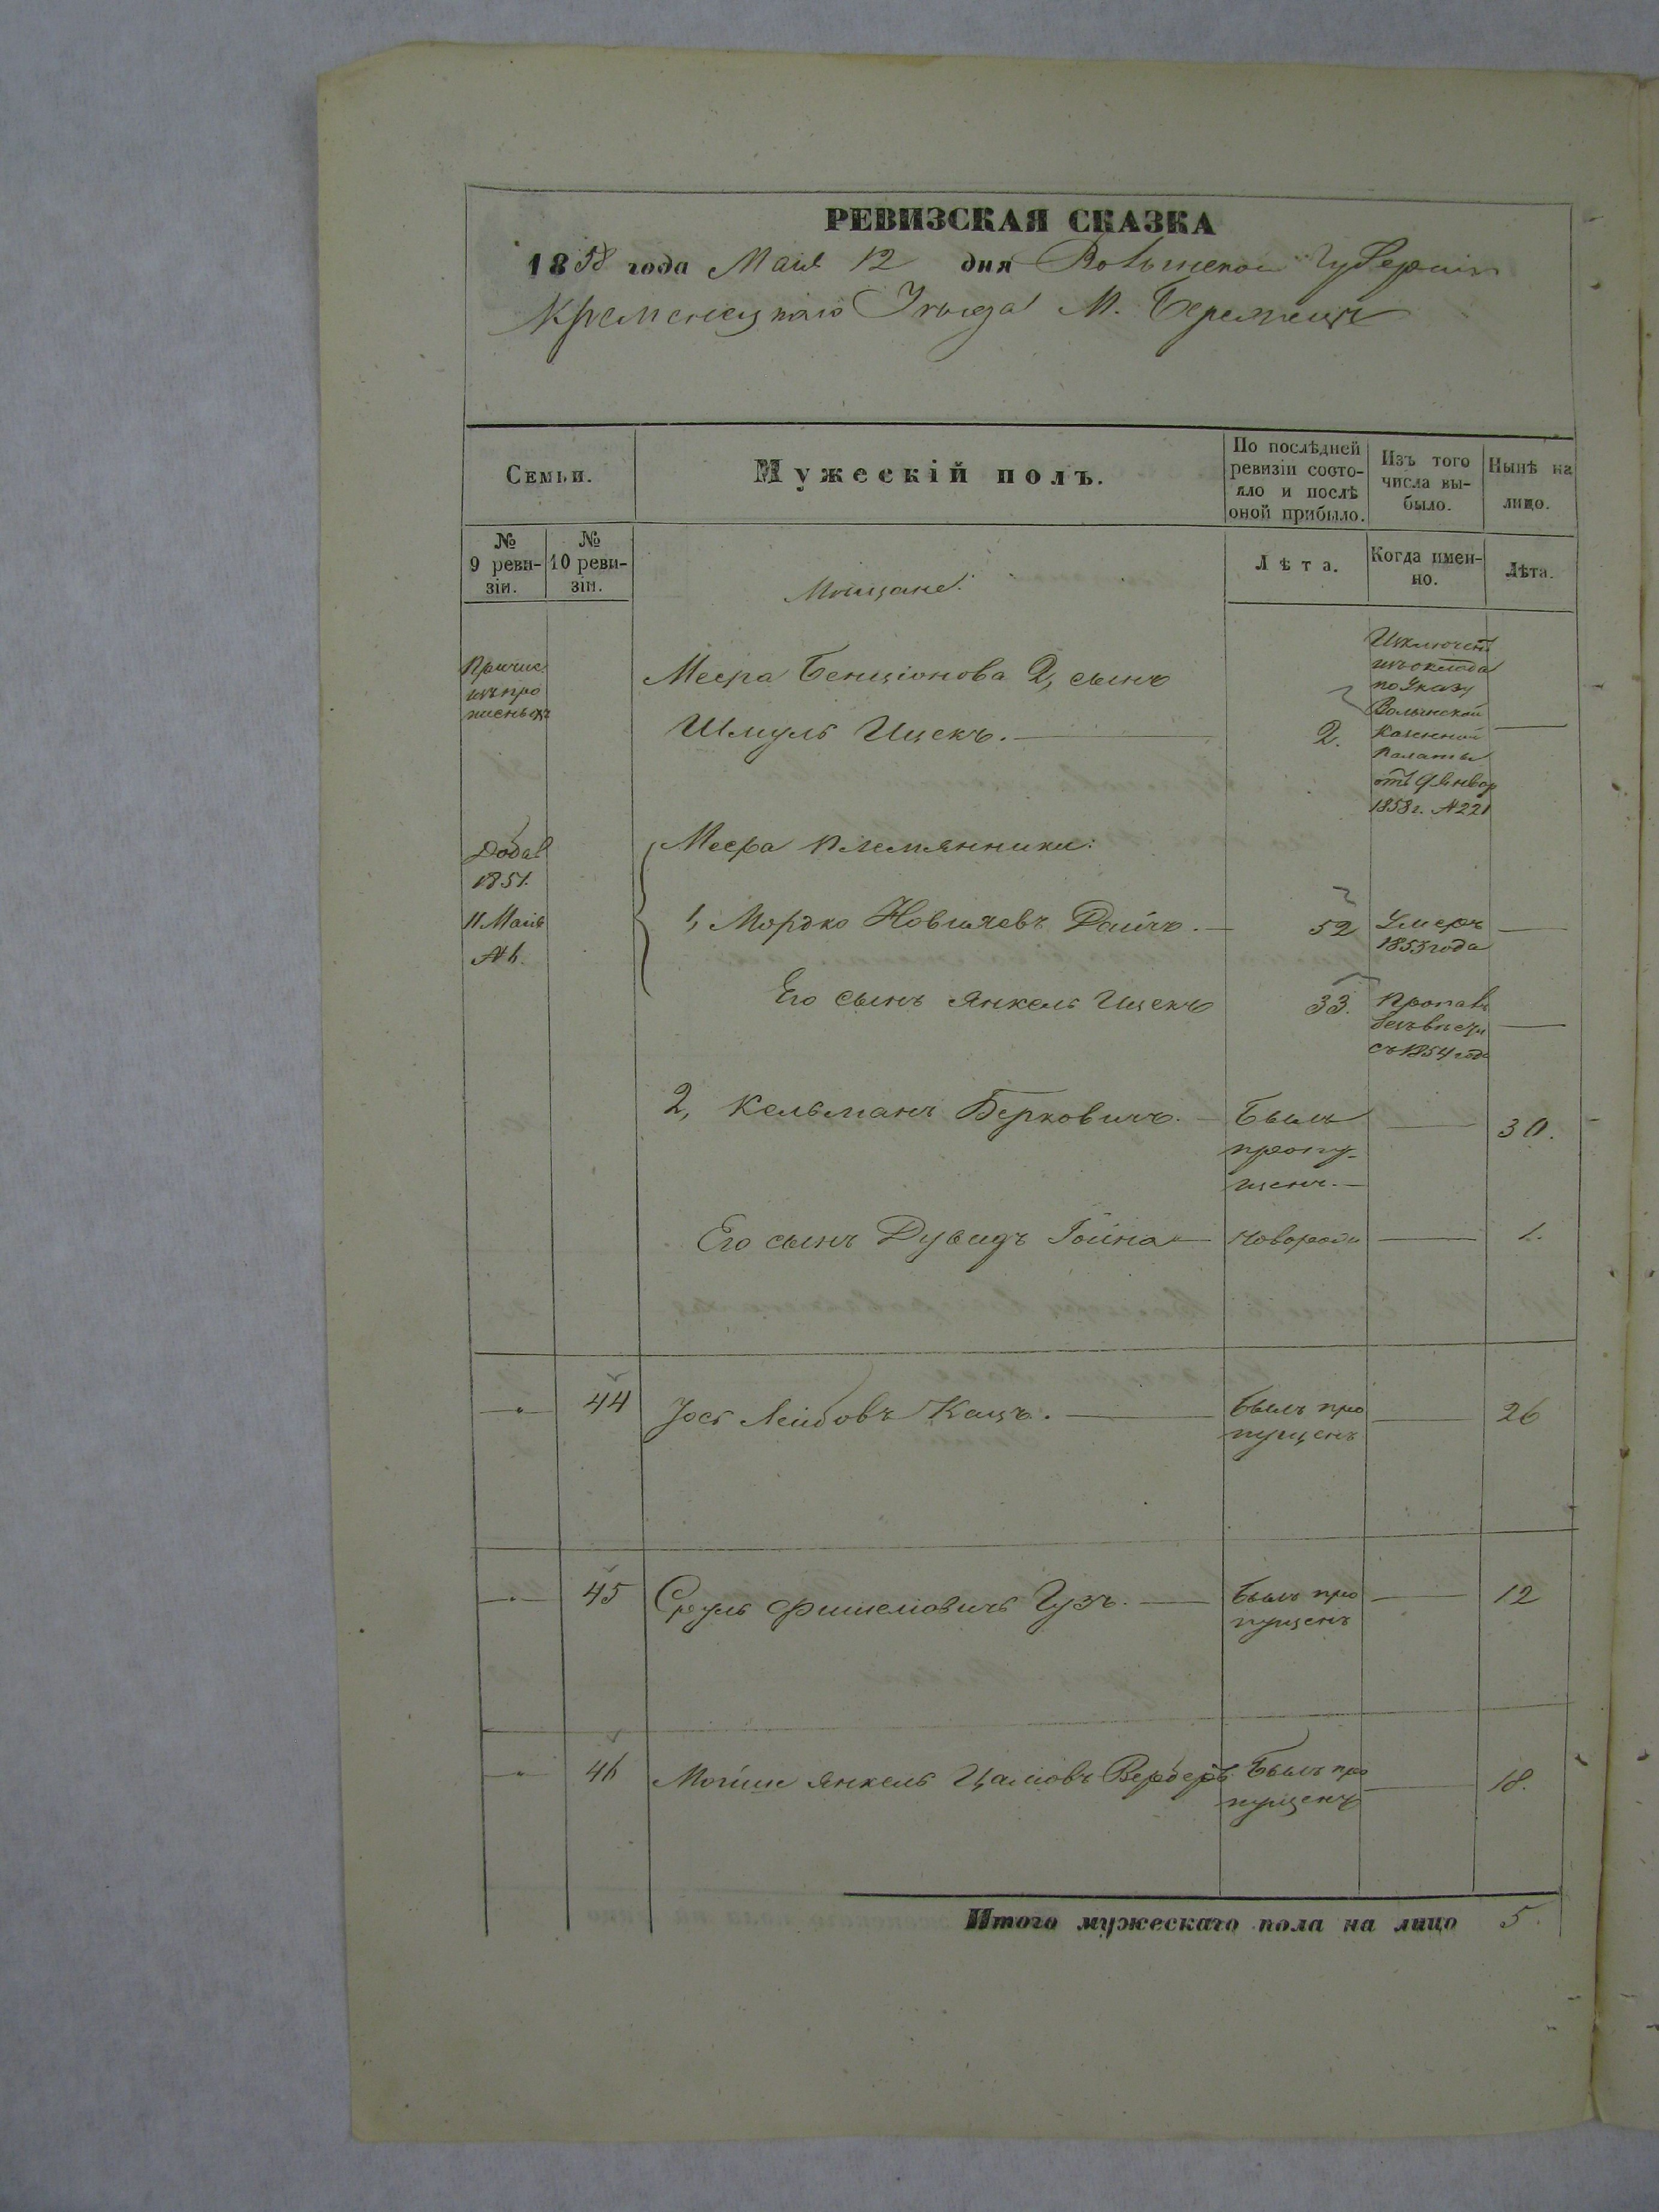 РЕВИЗСКАЯ СКАЗКА
1858 года Маія 12 дня Волынской Губерніи
Кременецкаго Уѣзда М. Бережецъ
Семьи.
Мужескій полъ.
По послѣдней ревизіи состо-
яло и послѣ оной прибыло.
Изъ того числа вы-
было.
Нынѣ на лицо.
№ 9 реви-
зіи.
№ 10 реви-
зіи.
Мѣщане.
Лѣта.
Когда имен-
но.
Лѣта.
Причис.
изъ про
писныхъ
Меера Бенціонова 2, сынъ
Шмуль Ицекъ. — 2. —
Исключенъ
изъ оклада
по Указу
Волынской
Казенной
Палаты
отъ 9 Январ
1853 г. № 221
Добав
1851.
11 Маія
№ 6.
Меера племянники:
1, Мордко Новшаевъ Дайчъ. — 52 Умеръ —
1853 года
Его сынъ Янкель Ицекъ 33. Пропавъ —
безъ вѣсти
съ 1854 года
2, Кельманъ Берковичъ. — Былъ — 30.
пропу-
щенъ. —
Его сынъ Дувидъ Гойна — Новорожд — 1.
— " — 44 Іось Лейбовъ Кацъ. — Былъ про — 26
пущенъ
— " — 45 Сруль Фишелювичъ Гузъ. — Былъ про — 12
пущенъ
— " — 46 Мойше Янкель Цаліовъ Верберъ. Былъ про — 18.
пущенъ
Итого мужескаго пола на лицо 5.